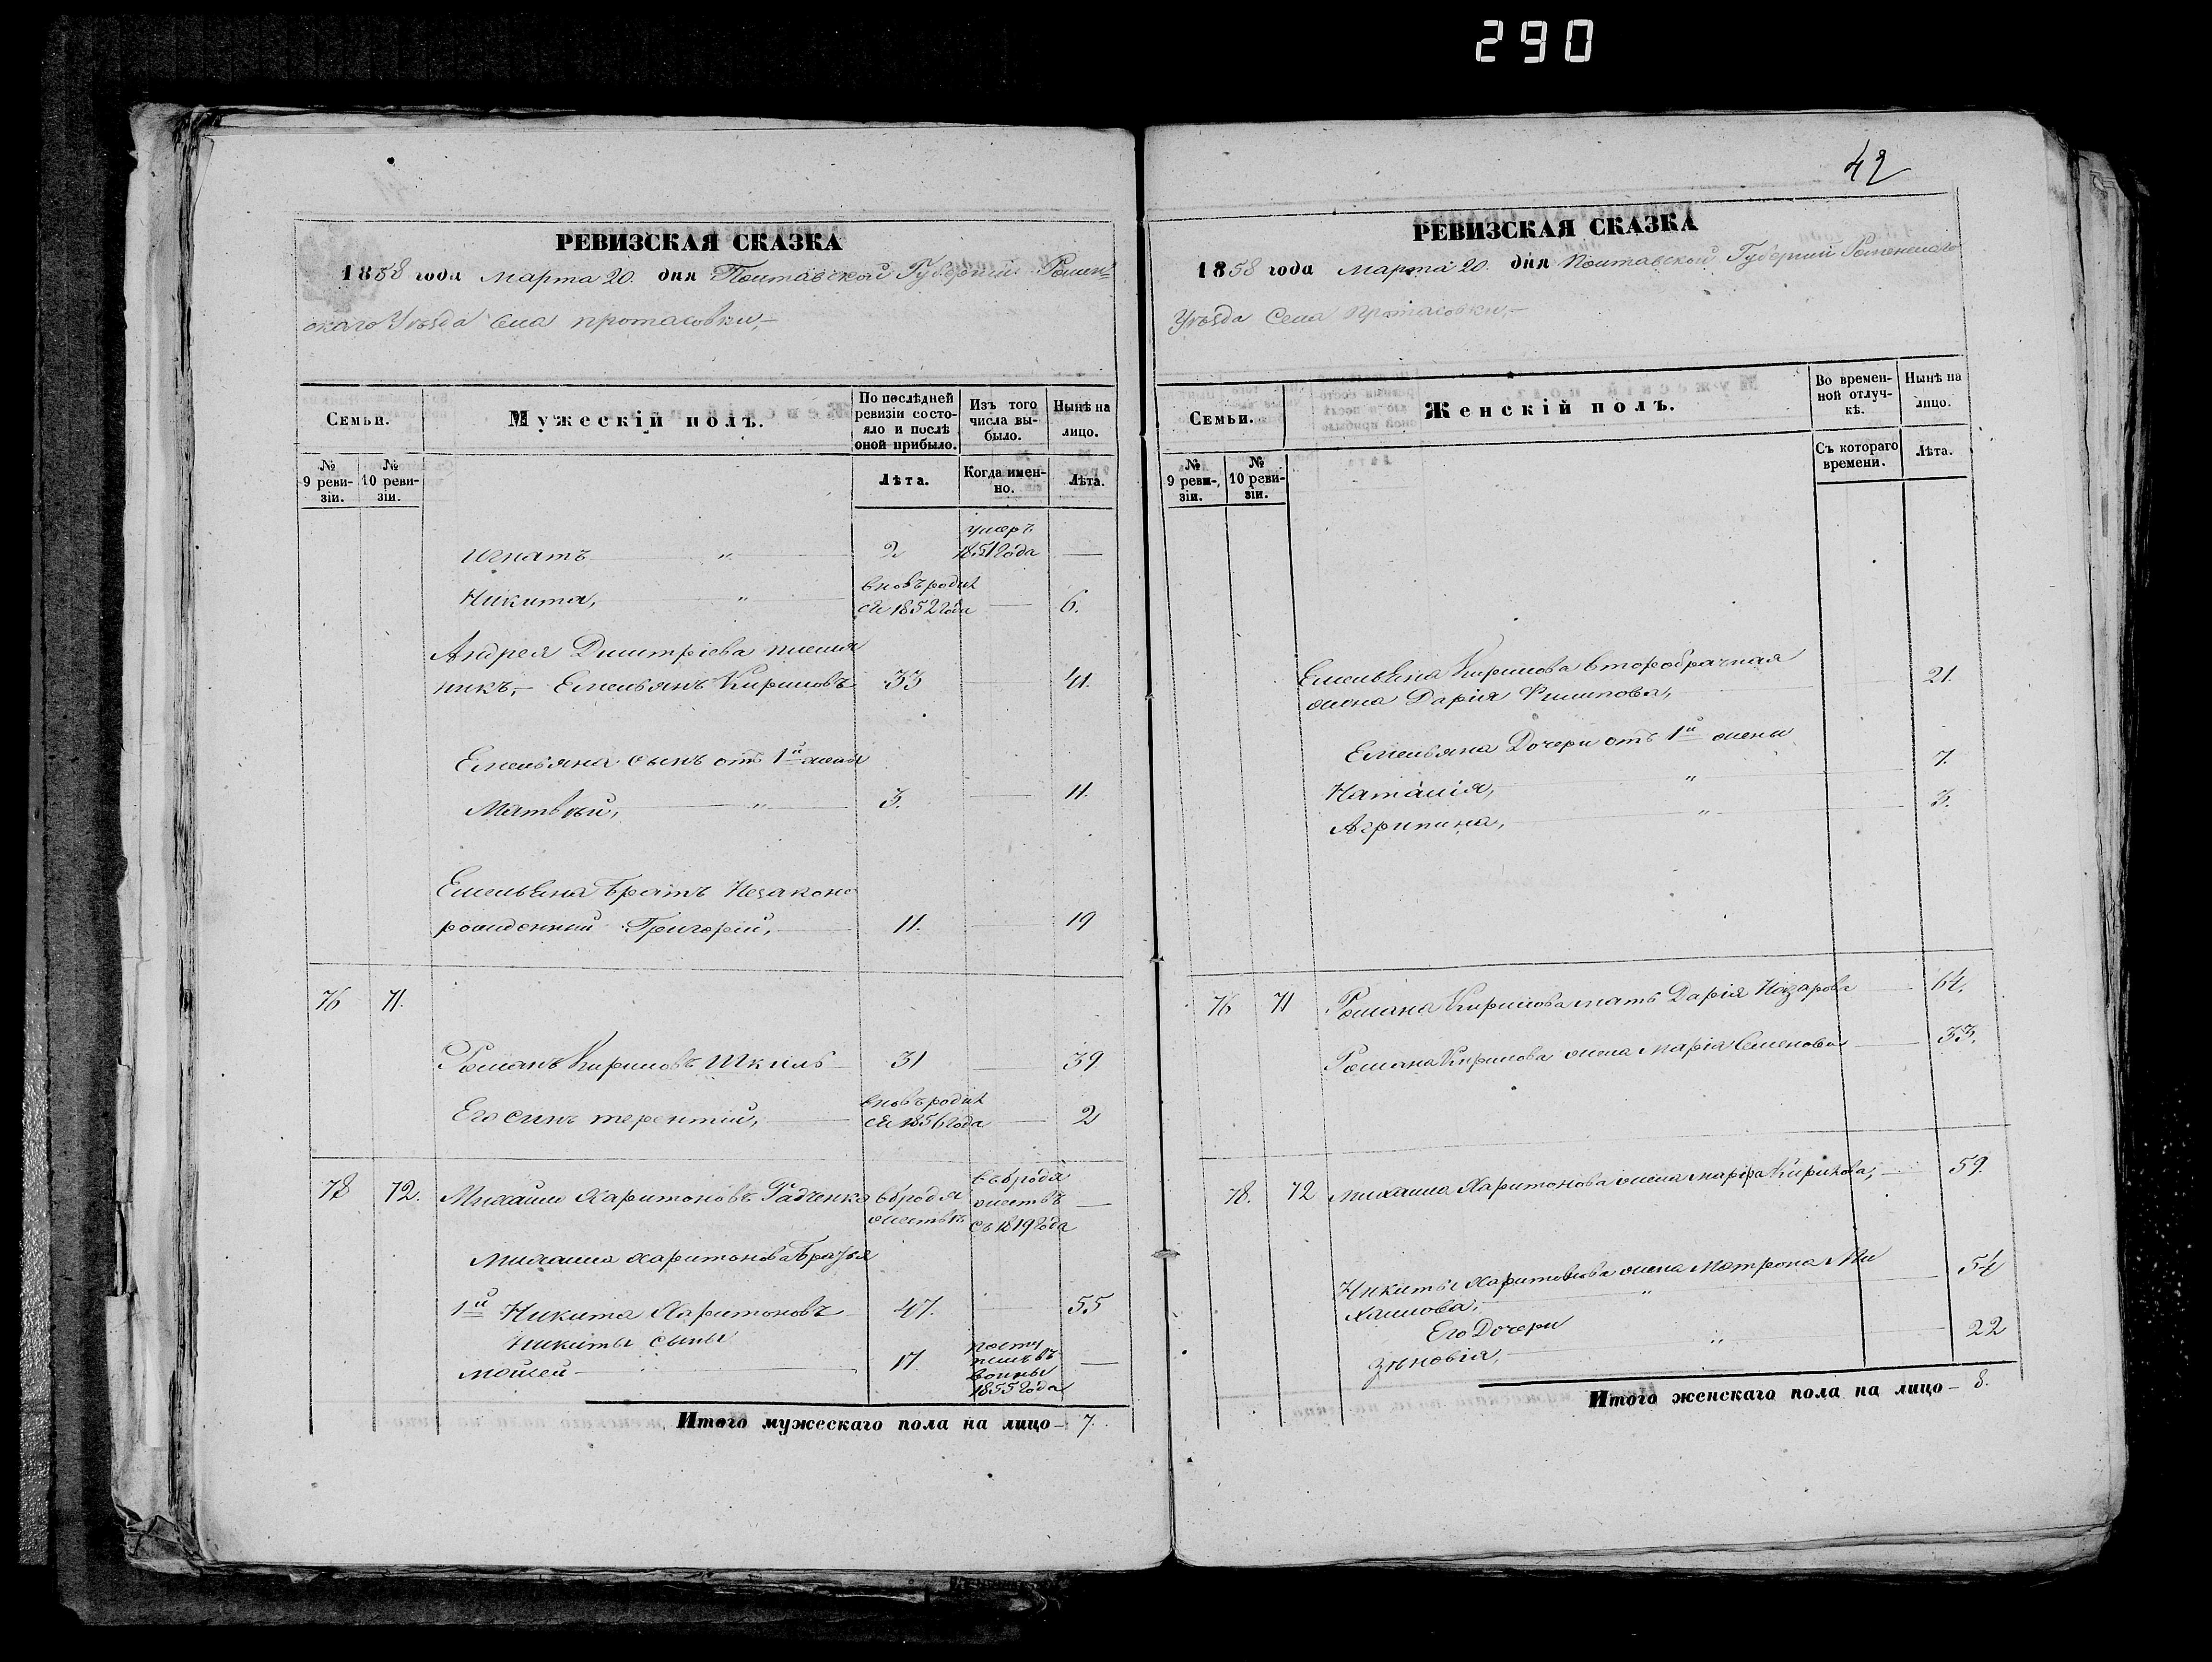 290
РЕВИЗСКАЯ СКАЗКА
1858 года Марта 20. дня Полтавской Губерніи Ромен-
скаго Уѣзда Села Протасовки,-
Семьи.
Мужескій полъ.
По послѣдней ревизіи состояло и послѣ оной прибыло.
Изъ того числа выбыло.
Нынѣ на лицо.
№ 9 ревизіи.
№ 10 ревизіи.
Лѣта.
Когда именно.
Лѣта.
умеръ
Игнатъ " 2 1851 года —
вновь родил
Никита, " ся 1852 года — 6.
Андрея Дмитріева племян
никъ,- Емельянъ Кириловъ 33 — 41.
Емельяна сынъ отъ 1й жены
Матвѣй, " 3. — 11.
Емельяна Братъ Незаконо
рожденный Григорій, 11. — 19
76 71.
Романъ Кириловъ Шкиль 31 — 39.
вновь родил
Его сынъ Терентій, ся 1856 года — 2
78 72. Михаилъ Харитоновъ Радченко въ бродяжествѣ въ бродяжествѣ съ 1819 года —
Михаила Харитонова Братья
1й Никита Харитоновъ 47. — 55
Никиты сыны
Мойсей 17. поступилъ въ воины 1855 года —
Итого мужескаго пола на лицо — 7.
42
РЕВИЗСКАЯ СКАЗКА
1858 года Марта 20. дня Полтавской Губерніи Роменскаго
Уѣзда Села Протасовки,-
Семьи.
Женскій полъ.
Во временной отлучкѣ.
Нынѣ на лицо.
№ 9 ревизіи.
№ 10 ревизіи.
Съ котораго времени.
Лѣта.
Емельяна Кирилова второбрачная
жена Дарія Филипова, 21.
Емельяна Дочери отъ 1й жены
Наталія, " 7.
Агрипина, " 3.
76 71 Романа Кирилова мать Дарія Назарова 64.
Романа Кирилова жена Марія Семенова 33.
78. 72 Михаила Харитонова жена Марфа Кирилова, 59.
Никиты Харитонова жена Матрона Ми
хаилова, " 54
Его Дочери
Зѣновія, " 22
Итого женскаго пола на лицо — 8.